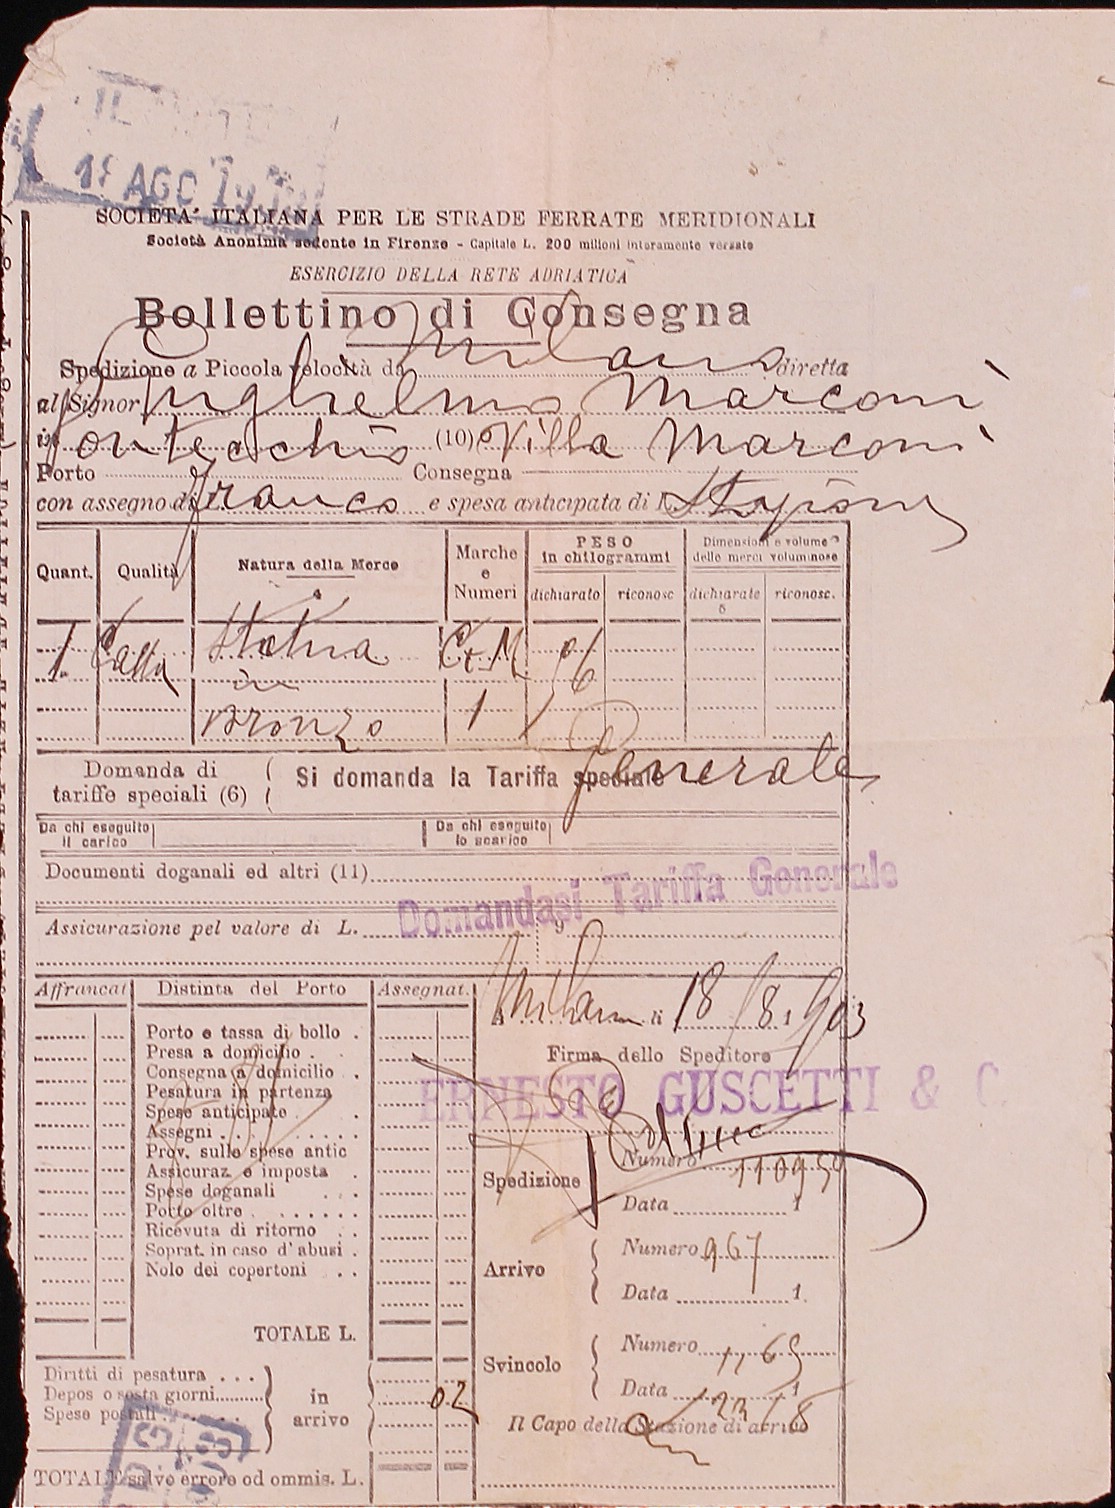 AGO
SOCIETA' ITALIANA PER LE STRADE FERRATE MERIDIONALI
Società Anonima sedente in Firenze - Capitale L. 200 milioni interamente versato
ESERCIZIO DELLA RETE ADRIATICA
Bollettino di Consegna
Spedizione a Piccola velocità da Milano diretta
al Signor Guglielmo Marconi
in Pontecchio (10) Villa Marconi
Porto Consegna
con assegno di franco e spesa anticipata di L. Stazione
Quant. Qualità Natura della Merce Marche e Numeri PESO in chilogrammi Dimensioni e volume delle merci voluminose
dichiarato riconosc dichiarate riconosc.
1 Cassa Statua C+M 96
in
Bronzo 1
Generale
Domanda di tariffe speciali (6) Si domanda la Tariffa speciale
Da chi eseguito il carico Da chi eseguito lo scarico
Documenti doganali ed altri (11)
Domandasi Tariffa Generale
Assicurazione pel valore di L. 9
Affrancat. Distinta del Porto Assegnat.
Milano li 18/8 1903
Porto e tassa di bollo .
Presa a domicilio .
Firma dello Speditore
Consegna a domicilio .
ERNESTO GUSCETTI & C.
Pesatura in partenza
Spese anticipate .
Assegni
Prov. sulle spese antic
Assicuraz. e imposta .
Spese doganali
Porto oltre
Ricevuta di ritorno
Soprat. in caso d'abusi .
Nolo dei copertoni
TOTALE L.
Spedizione Numero
Data 1
Arrivo Numero 967
Data 1
Svincolo Numero
Data 1
Il Capo della Stazione di arrivo
Diritti di pesatura
Depos o sosta giorni
Spese postali
in arrivo 02
TOTALE salvo errore od ommis. L.